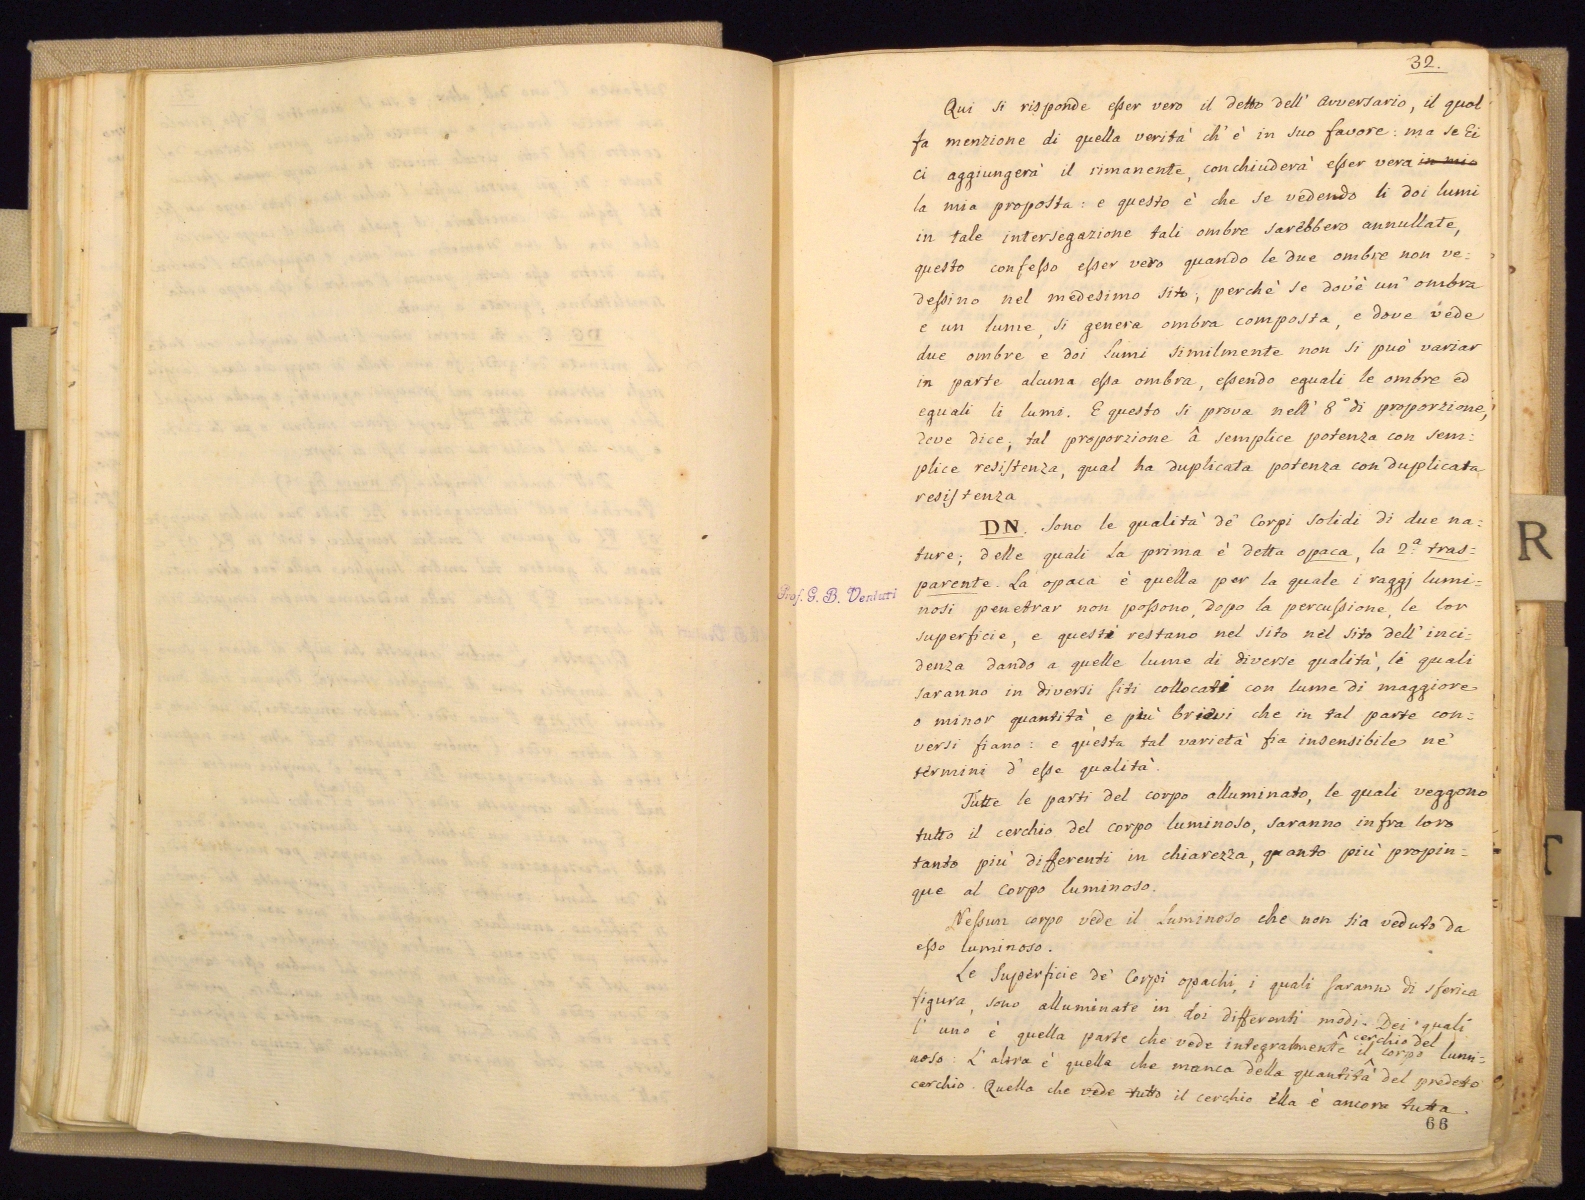 32.
Qui si risponde esser vero il detto dell' avversario, il qual
fa menzione di quella verità ch' è in suo favore: ma se Ei
ci aggiungerà il rimanente, conchiuderà esser vera in mio
la mia proposta: e questo è che se vedendo li doi lumi
in tale intersegazione tali ombre sarebbero annullate,
questo confesso esser vero quando le due ombre non ve=
dessino nel medesimo sito; perchè se dov'è un' ombra
e un lume, si genera ombra composta, e dove vede
due ombre e doi Lumi similmente non si può variar
in parte alcuna essa ombra, essendo eguali le ombre ed
eguali li lumi. E questo si prova nell' 8° di proporzione,
dove dice; tal proporzione â semplice potenza con sem=
plice resistenza, qual ha duplicata potenza con duplicata
resistenza
DN. Sono le qualità de' Corpi solidi di due na=
ture; delle quali la prima è detta opaca, la 2.ª tras=
parente. La opaca è quella per la quale i raggj lumi=
Prof. G. B. Venturi
nosi penetrar non possono, dopo la percussione, le lor
superficie, e questi restano nel sito nel sito dell' inci=
denza dando a quelle lume di diverse qualità, le quali
saranno in diversi siti collocati con lume di maggiore
o minor quantità e più brievi che in tal parte con=
versi fiano: e questa tal varietà fia insensibile ne'
termini d' esse qualità.
Tutte le parti del corpo alluminato, le quali veggono
tutto il cerchio del corpo luminoso, saranno infra loro
tanto più differenti in chiarezza, quanto più propin=
que al corpo luminoso.
Nessun corpo vede il Luminoso che non sia veduto da
esso luminoso.
Le Superficie de' Corpi opachi, i quali saranno di sferica
figura, sono alluminate in doi differenti modi. Dei quali
l' uno è quella parte che vede integralmente il cerchio del corpo lumi=
noso: L' altra è quella che manca della quantità del predeto
cerchio. Quella che vede tutto il cerchio ella è ancora tutta
66